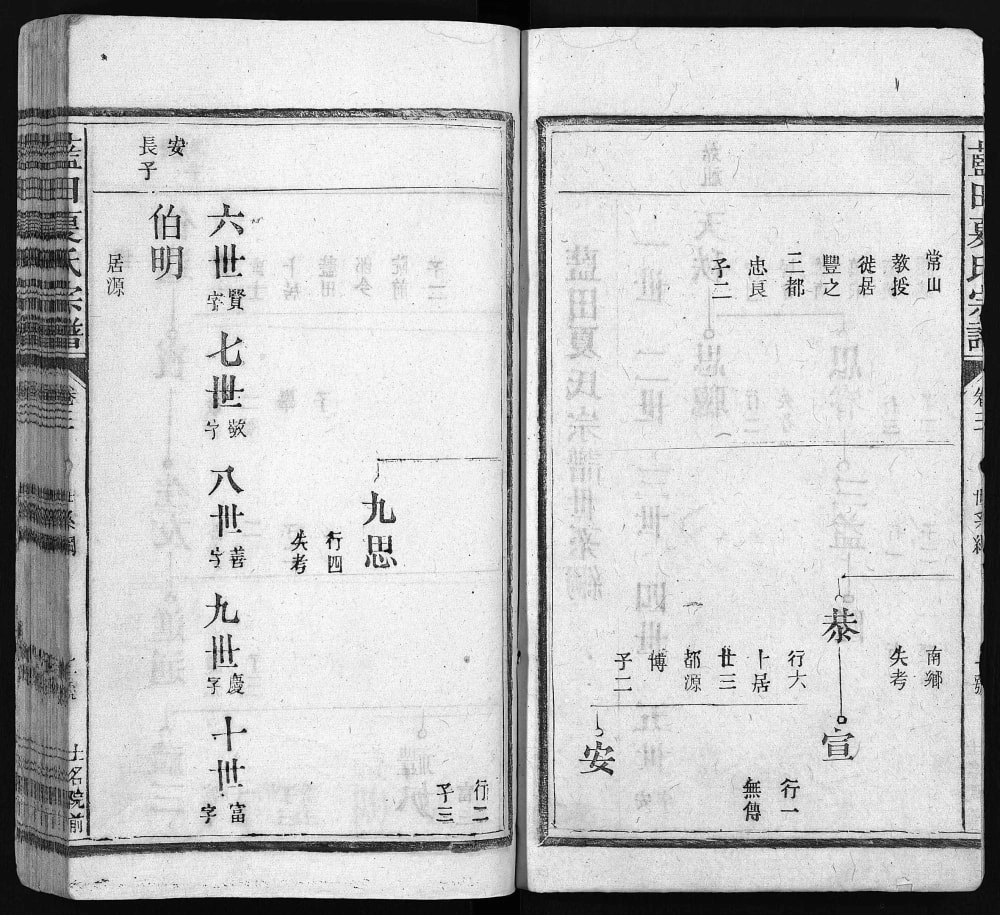 藍田夏氏宗譜
卷三
常山
教授
徙居
豐之
三都
忠良
子二
南鄉
失考
恭
宣
行一
無傳
行大
卜居
廿三
都源
博
子二
安
行二
子三
九思
行四
失考
六世賢字
七世敬字
八世善字
九世慶字
十世富字
安
長子
伯明
居源
藍田夏氏宗譜
卷三
世系綱
士名院前